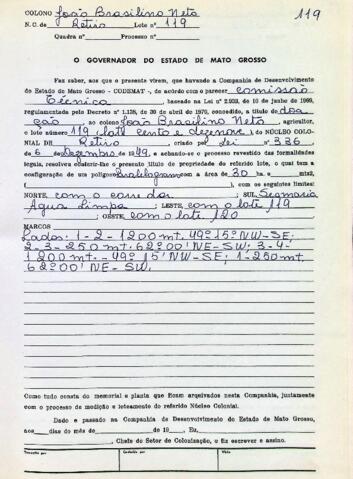 119
COLONO João Brasilino Neto
N. C. de Retiro Lote nº 119
Quadra nº Processo nº
O GOVERNADOR DO ESTADO DE MATO GROSSO
Faz saber, aos que a presente virem, que havendo a Companhia de Desenvolvimento
do Estado de Mato Grosso - CODEMAT -, de acordo com o parecer comissão
Técnica baseado na Lei nº 2.903, de 10 de junho de 1969,
regulamentada pelo Decreto nº 1.138, de 30 de abril de 1970, concedido, a título de doa
ção ao colono João Brasilino Neto, agricultor,
o lote número 119 (lote cento e dezenove) do NÚCLEO COLO-
NIAL DE Retiro criado por Lei nº 336
de 6 de Dezembro de 1949, e achando-se o processo revestido das formalidades
legais, resolveu conferir-lhe o presente título de propriedade do referido lote, o qual tem a
configuração de um polígono Paralelogramo com a área de 30 ha. mts2,
( ), com os seguintes limites:
NORTE, com o corredor; SUL, Sesmaria
Água Limpa; LESTE, com o lote 119
OESTE, com o lote 120
MARCOS
Lados: 1-2-1200 mt. 49º15' NW-SE;
2-3-250 mt. 62º00' NE-SW; 3-4-
1200 mt. - 49º15' NW-SE; 1-250 mt.
62º00' NE-SW.
Como tudo consta do memorial e planta que ficam arquivados nesta Companhia, juntamente
com o processo de medição e loteamento do referido Núcleo Colonial.
Dado e passado na Companhia de Desenvolvimento do Estado de Mato Grosso,
aos dias do mês de de 19 , Eu,
, Chefe do Setor de Colonização, o fiz escrever e assino.
Transcrito por Conferido por Visto